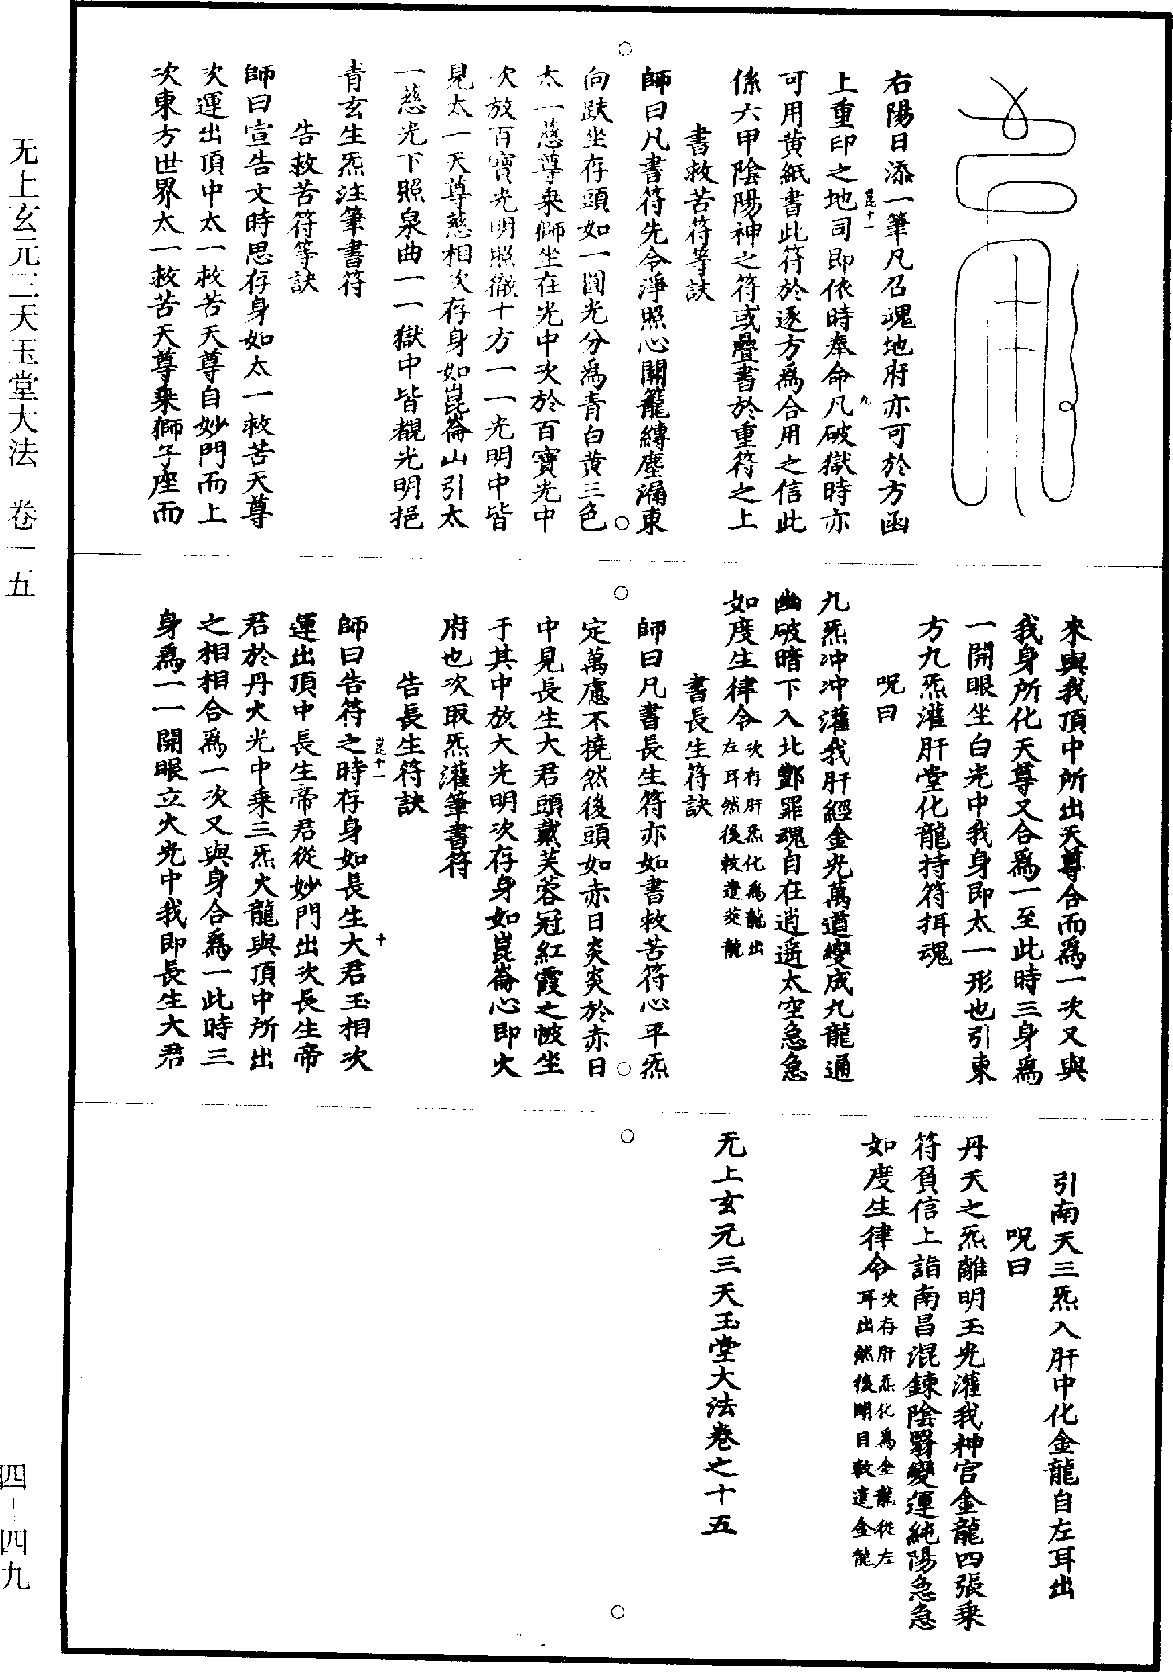 右陽日添一筆凡召魂地府亦可於方函
上重印之地司即依時奉命凡破獄時亦
可用黄紙書此符於逐方爲合用之信此
係六甲陰陽神之符或疊書於重符之上
書救苦符等訣
師曰凡書符先令淨照心關籠縛塵漏東
向趺坐存頭如一圓光分爲青白黄三色
太一慈尊乘獅坐在光中次於百寶光中
次放百寶光明照徹十方一一光明中皆
見太一天尊慈相次存身如崑崙山引太
一慈光下照泉曲一一獄中皆覩光明挹
青玄生炁注筆書符
告救苦符等訣
師曰宣告文時思存身如太一救苦天尊
次運出頂中太一救苦天尊自妙門而上
次東方世界太一救苦天尊乘獅子座而
來與我頂中所出天尊合而爲一次又與
我身所化天尊又合爲一至此時三身爲
一開眼坐白光中我身即太一形也引東
方九炁灌肝堂化龍持符拜魂
呪曰
九炁冲冲灌我肝經金光萬道變成九龍通
幽破暗下入北酆罪魂自在逍遥太空急急
如度生律令次存肝炁化爲龍出
左耳然後敕遣茭龍
書長生符訣
師曰凡書長生符亦如書救苦符心平炁
定萬慮不撓然後頭如赤日炎炎於赤日
中見長生大君頭戴芙蓉冠紅霞之帔坐
于其中放大光明次存身如崑崙心即火
府也次取炁灌筆書符
告長生符訣
師曰告符之時存身如長生大君玉相次
運出頂中長生帝君從妙門出次長生帝
君於丹火光中乘三炁火龍與頂中所出
之相相合爲一次又與身合爲一此時三
身爲一一開眼立火光中我即長生大君
引南天三炁入肝中化金龍自左耳出
呪曰
丹天之炁離明玉光灌我神宫金龍四張乘
符負信上詣南昌混鍊陰翳變運純陽急急
如度生律令次存肝炁化爲金龍從左
耳出然後開目敕遣金龍
无上玄元三天玉堂大法卷之十五
无上玄元三天玉堂大法 卷一五
四-四九